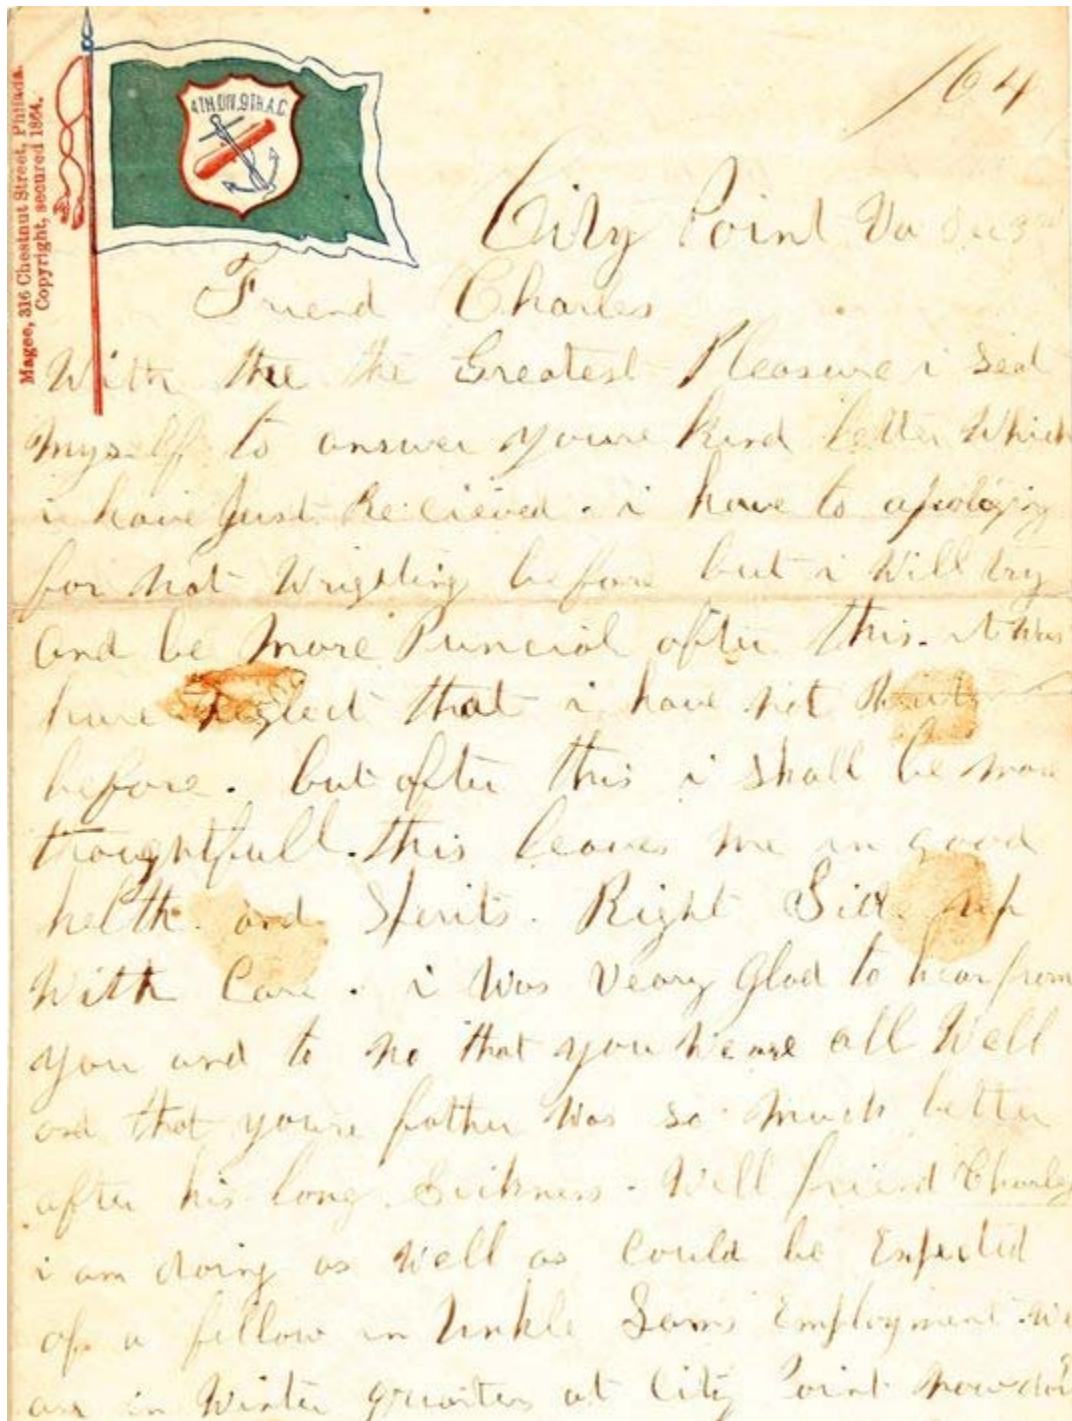 Magee, 316 Chestnut Street, Philada.
Copyright, secured 1864.
4TH.DIV.9TH.A.C.
/64
City Point Va 3rd
Friend Charles
With the the Greatest Pleasure i seat
myself to answer youre kind letter Which
i have Just Recieved. i have to apologiy
for not Wrighting before but i Will try
and be More Puncial after this. it Was
neglect that i have not
before. but after this i shall be more
thoughtfull. this leaves me in good
helth and Spirits. Right Side up
With Care. i Was Veary Glad to hear from
you and to no that you Weare all Well
and that youre father Was so much better
after his long Sickness. Well friend Charley
i am doing as Well as Could be Expected
of a fellow in Unkle Sams Employment. We
are in Winter quarters at City Point now